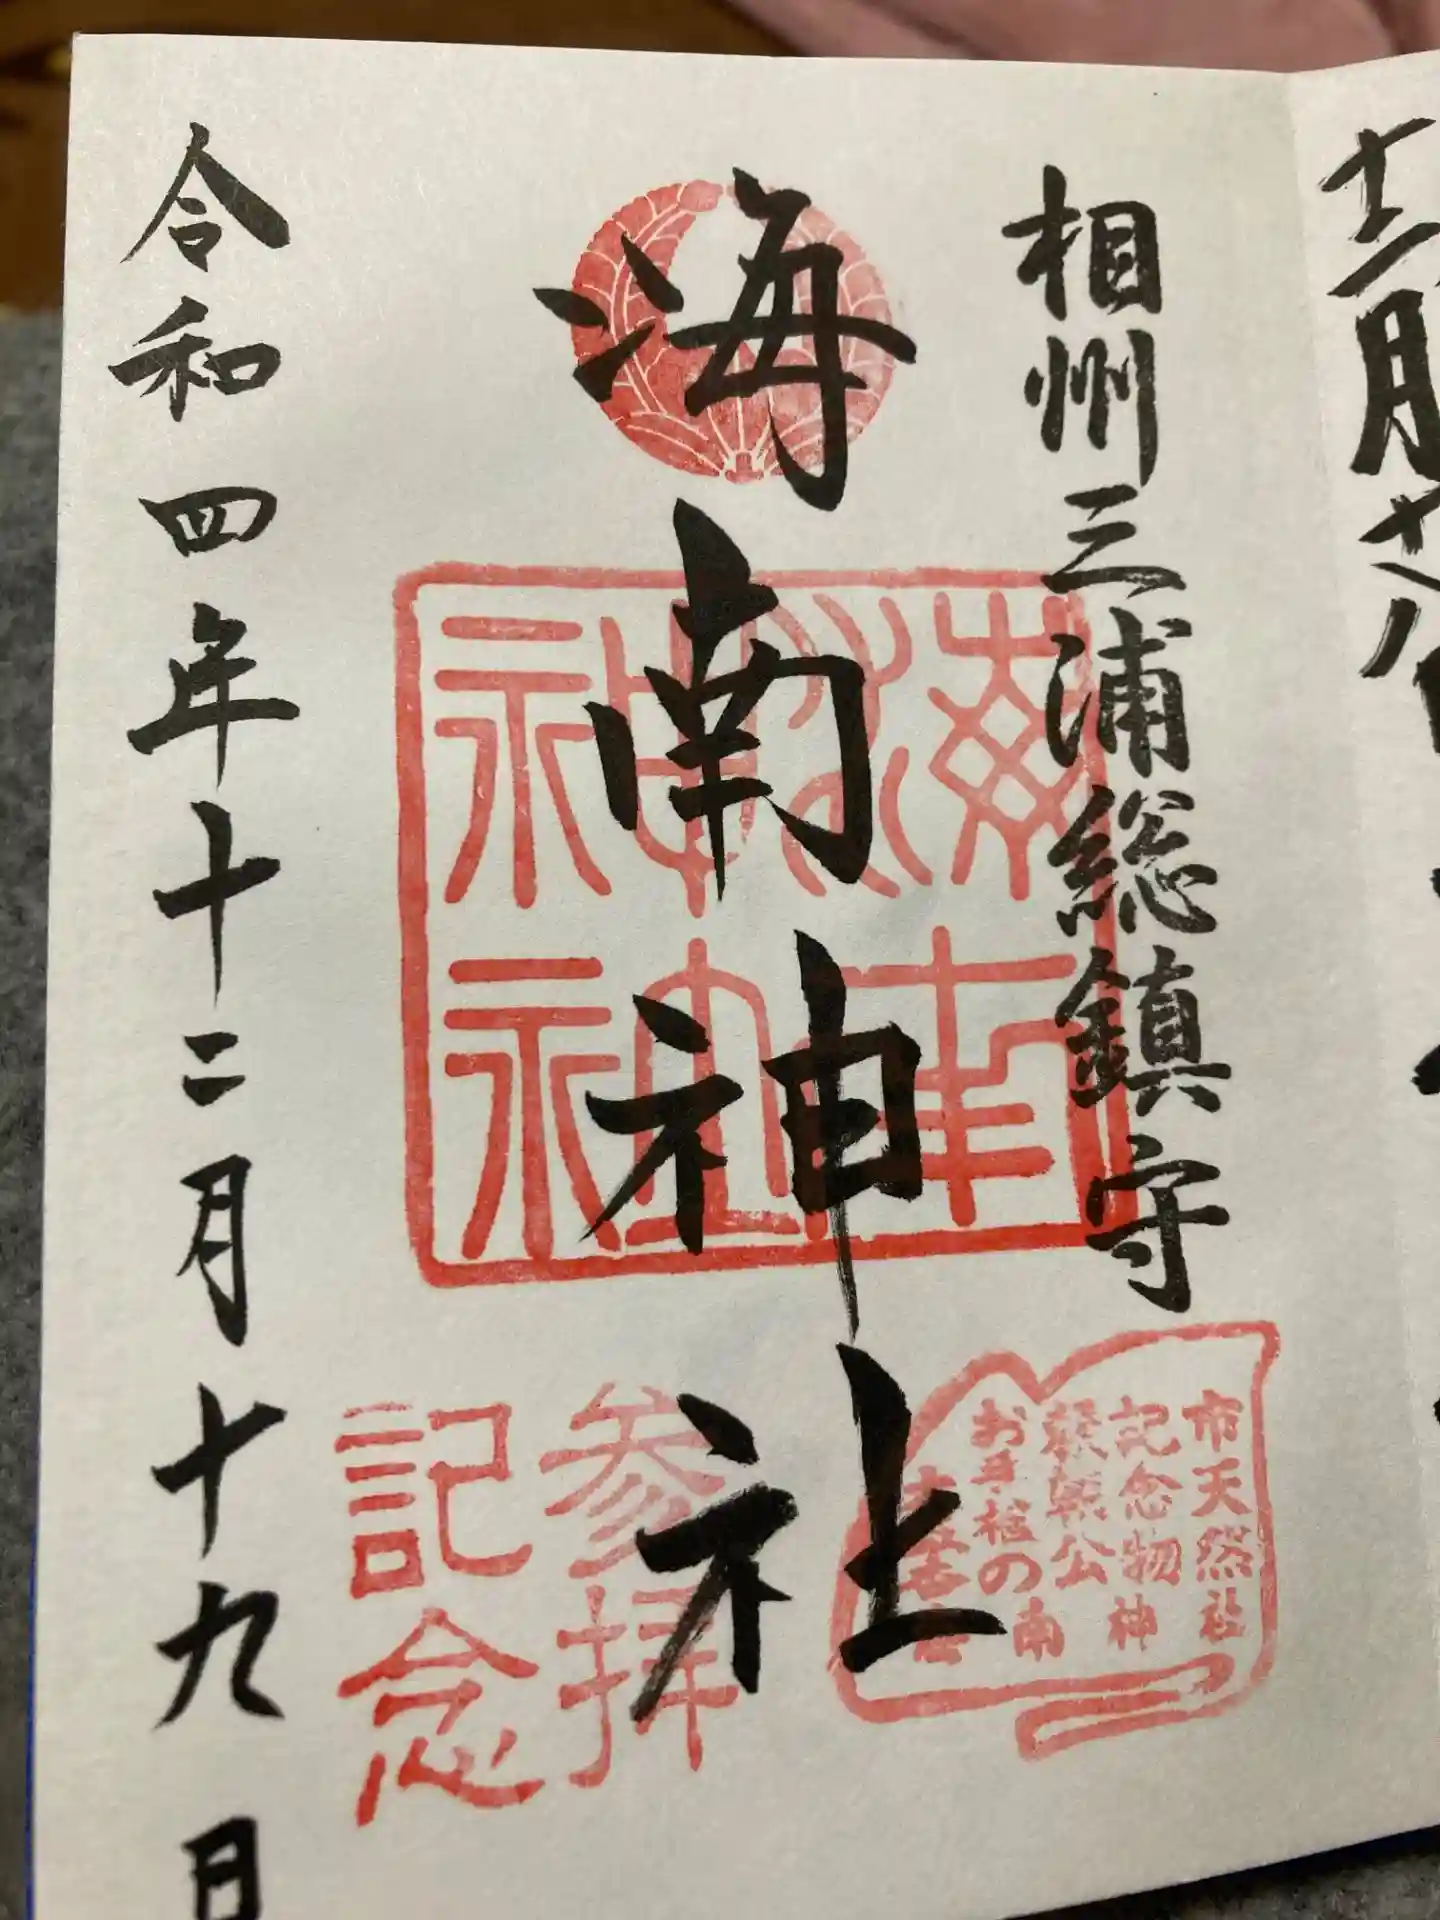 十二月十八日
相州三浦総鎮守
海南神社
海南神社
市天然
記念物神社
頼朝公
お手植の
南
参拝
記念
令和四年十二月十九日